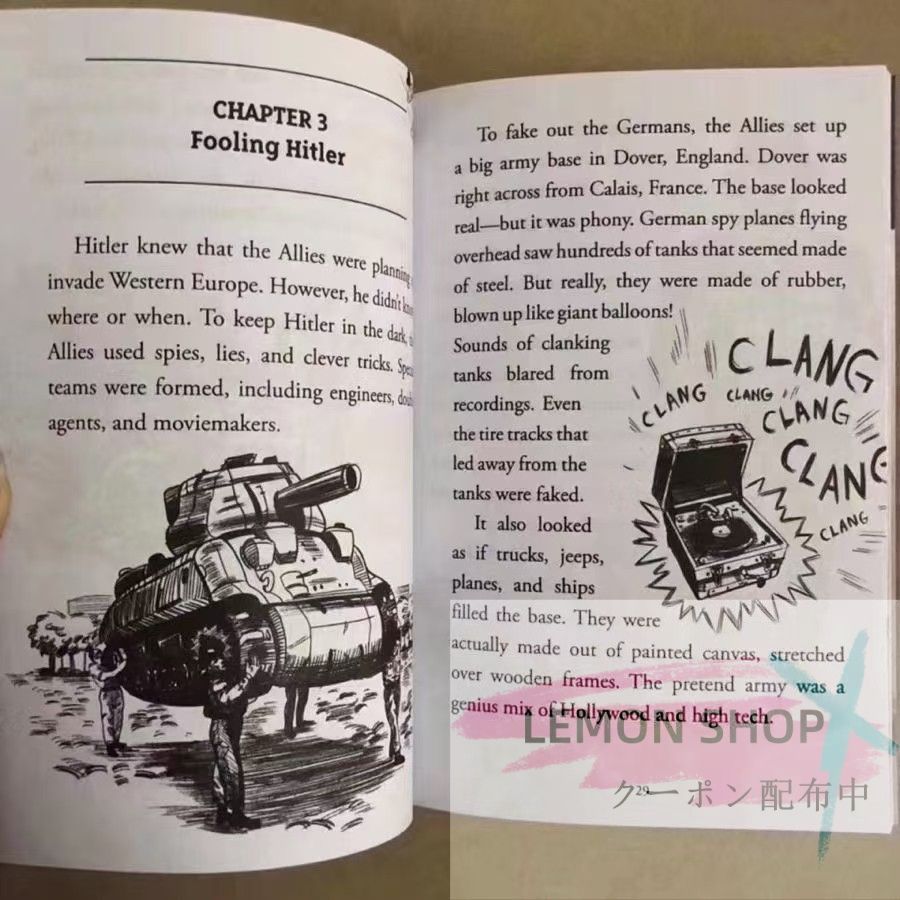 CHAPTER 3
Fooling Hitler
Hitler knew that the Allies were planning
invade Western Europe. However, he didn't
where or when. To keep Hitler in the dark,
Allies used spies, lies, and clever tricks.
teams were formed, including engineers,
agents, and moviemakers.
To fake out the Germans, the Allies set up
a big army base in Dover, England. Dover was
right across from Calais, France. The base looked
real—but it was phony. German spy planes flying
overhead saw hundreds of tanks that seemed made
of steel. But really, they were made of rubber,
blown up like giant balloons!
Sounds of clanking
tanks blared from
recordings. Even
the tire tracks that
led away from the
tanks were faked.
It also looked
as if trucks, jeeps,
planes, and ships
filled the base. They were
actually made out of painted canvas, stretched
over wooden frames. The pretend army was a
genius mix of Hollywood and high tech.
CLANG
CLANG
CLANG
CLANG
CLANG
CLANG
29
LEMON SHOP
クーポン配布中